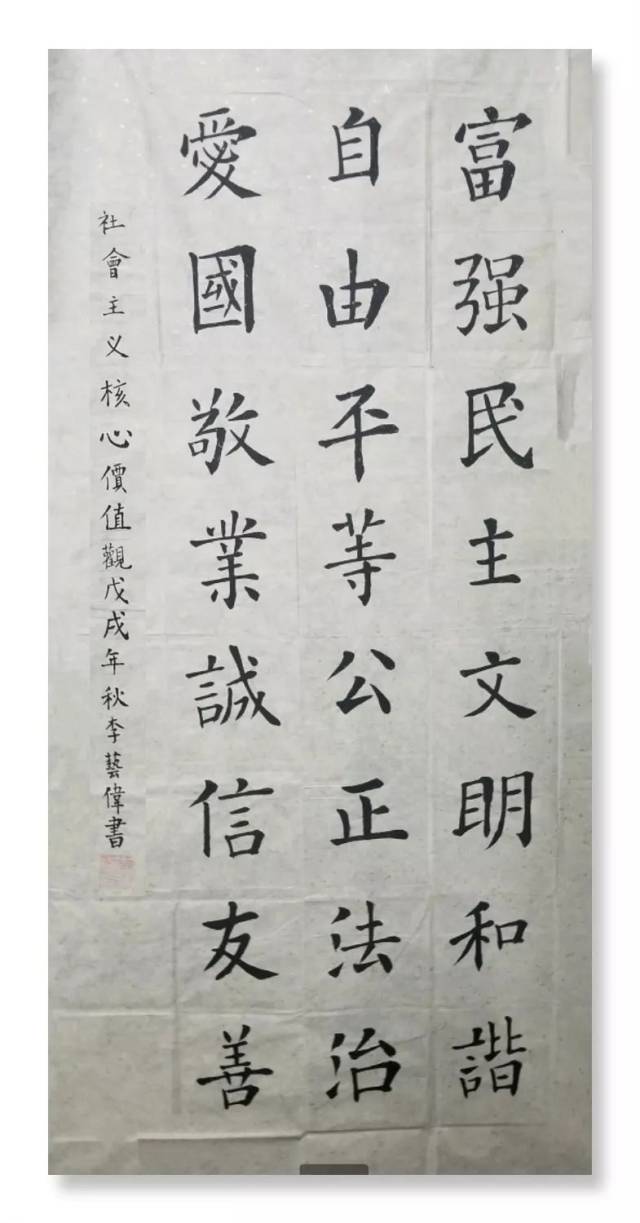 富强民主文明和諧
自由平等公正法治
愛國敬業誠信友善
社會主义核心價值觀戊戌年秋李藝偉書